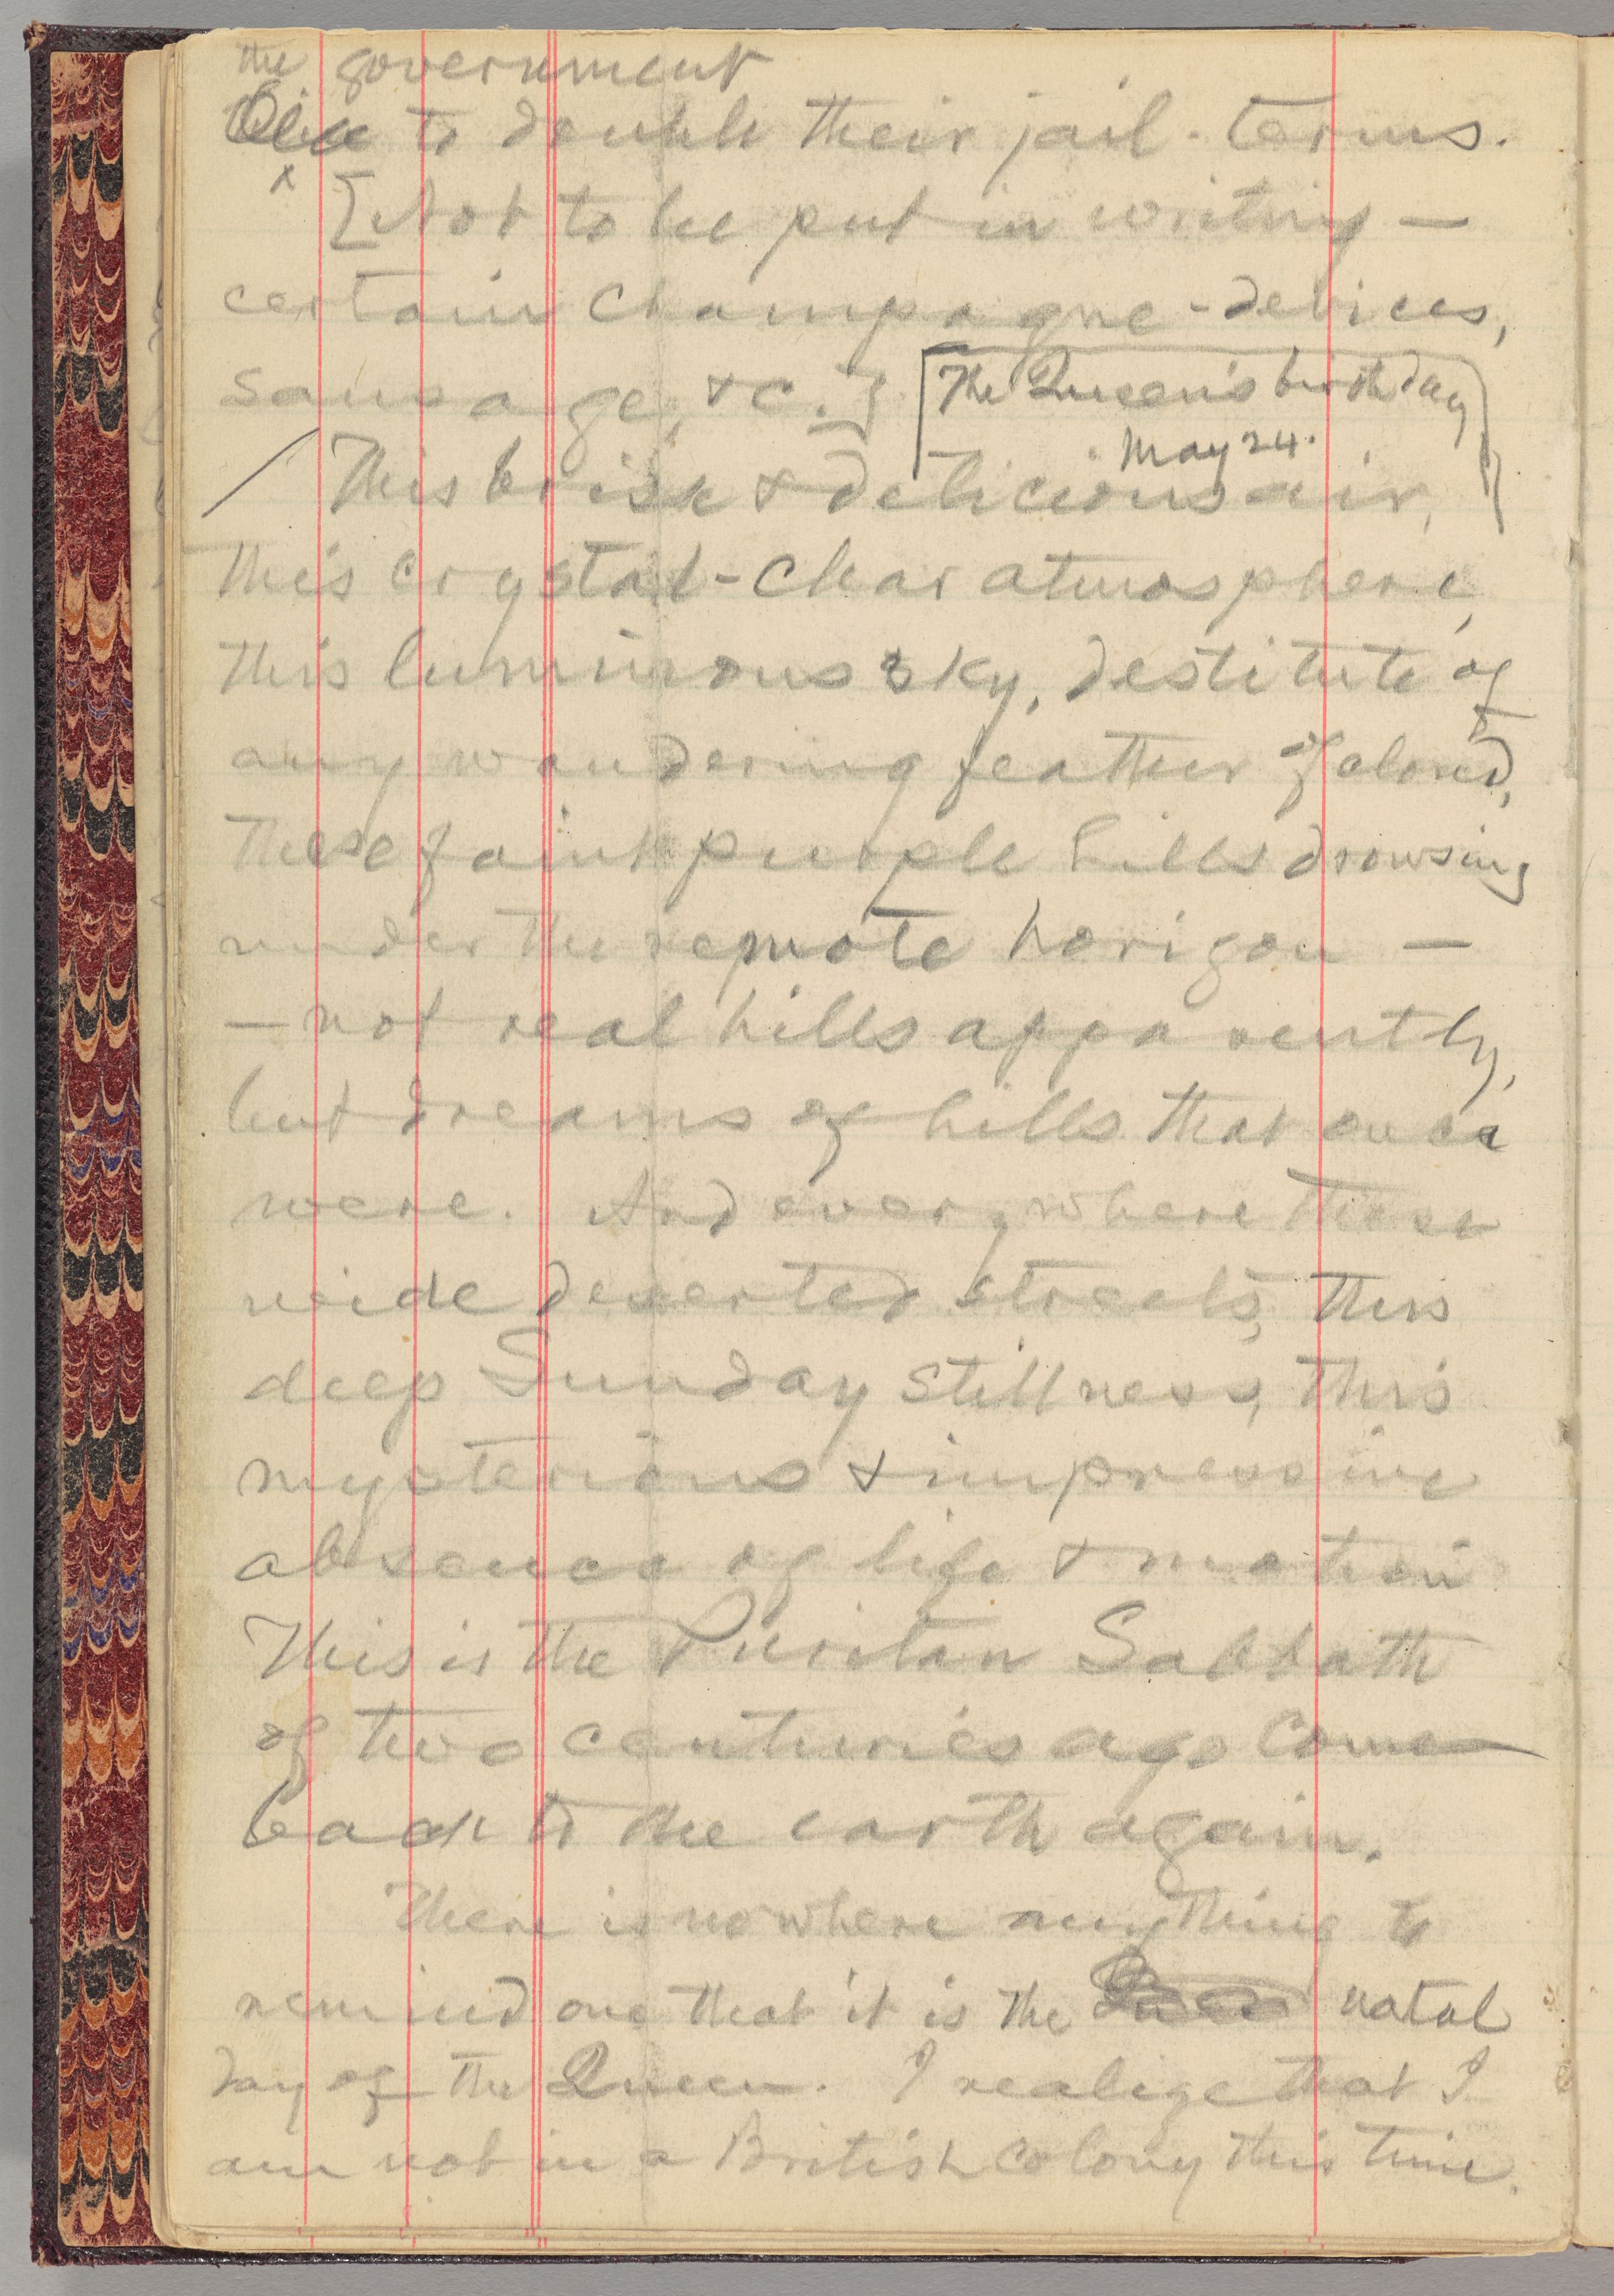 the government
to double their jail-terms.
x [Not to be put in writing —
certain champagne-devices,
sausage, &c.]
[The Queen's birthday
May 24.]
This brisk & delicious air,
this crystal-clear atmosphere,
this luminous sky, destitute of
any wandering feather of cloud,
these faint purple hills drowsing
under the remote horizon —
— not real hills apparently,
but dreams of hills that once
were. And everywhere these
wide deserted streets, this
deep Sunday stillness, this
mysterious & impressive
absence of life & motion
This is the Puritan Sabbath
of two centuries ago come
back to the earth again.
There is nowhere anything to
remind one that it is the natal
day of the Queen. I realize that I
am not in a British colony this time.